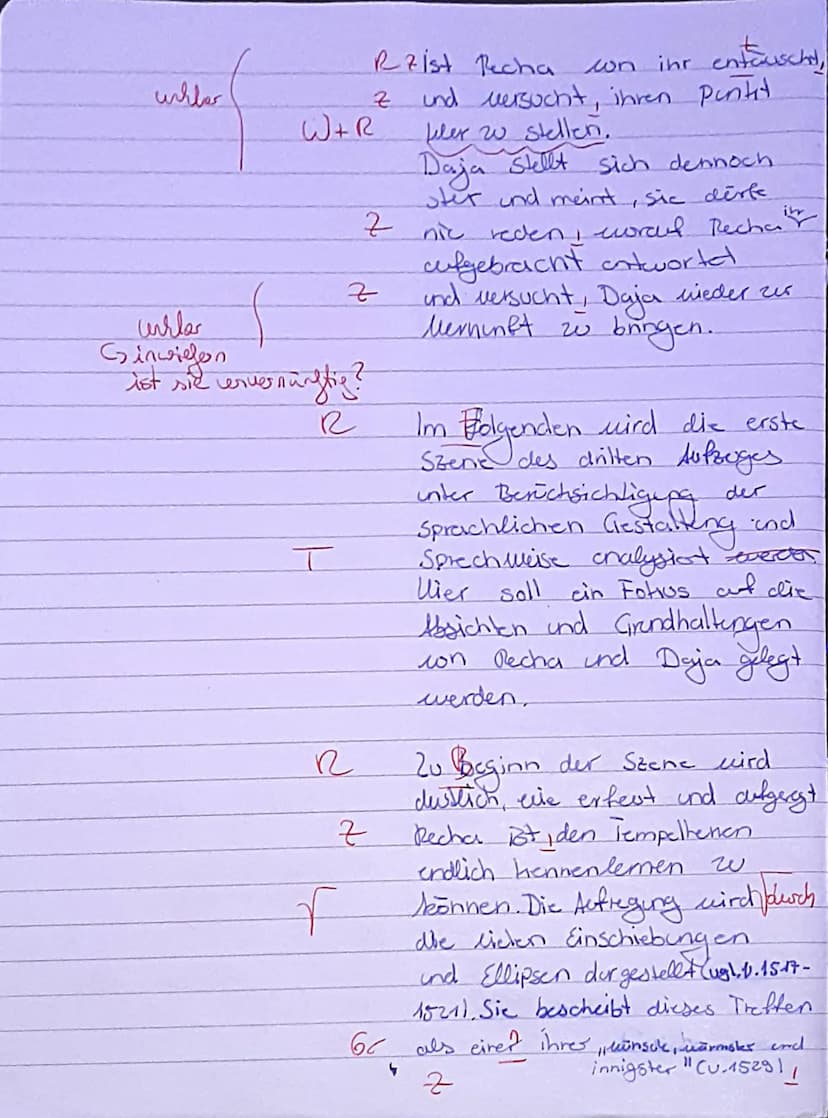 R Z ist Recha von ihr entäuscht,
t
unklar
Z und versucht, ihren Punkt
W+R klar zu stellen.
Daja stellt sich dennoch
stur und meint, sie dürfe
Z nie reden, worauf Recha ihr
aufgebracht antwortet
Z und versucht, Daja wieder zur
Vernunft zu bringen.
unklar
↳ inwiefern
ist sie unvernünftig?
R Im Folgenden wird die erste
Szene des dritten Aufzuges
unter Berüchsichtigung der
sprachlichen Gestaltung und
T Sprechweise analysiert werden
Hier soll ein Fokus auf die
Absichten und Grundhaltungen
von Recha und Daja gelegt
werden.
R Zu Beginn der Szene wird
deutlich, wie erfeut und aufgeregt
Z Recha ist, den Tempelherren
endlich kennenlernen zu
können. Die Aufregung wird durch
die vielen Einschiebungen
und Ellipsen dargestellt (vgl. V. 1517-
1521). Sie bescheibt dieses Treffen
Gr als einer ihrer „wünsche, wärmster und
innigster" (V. 1529) !
Z